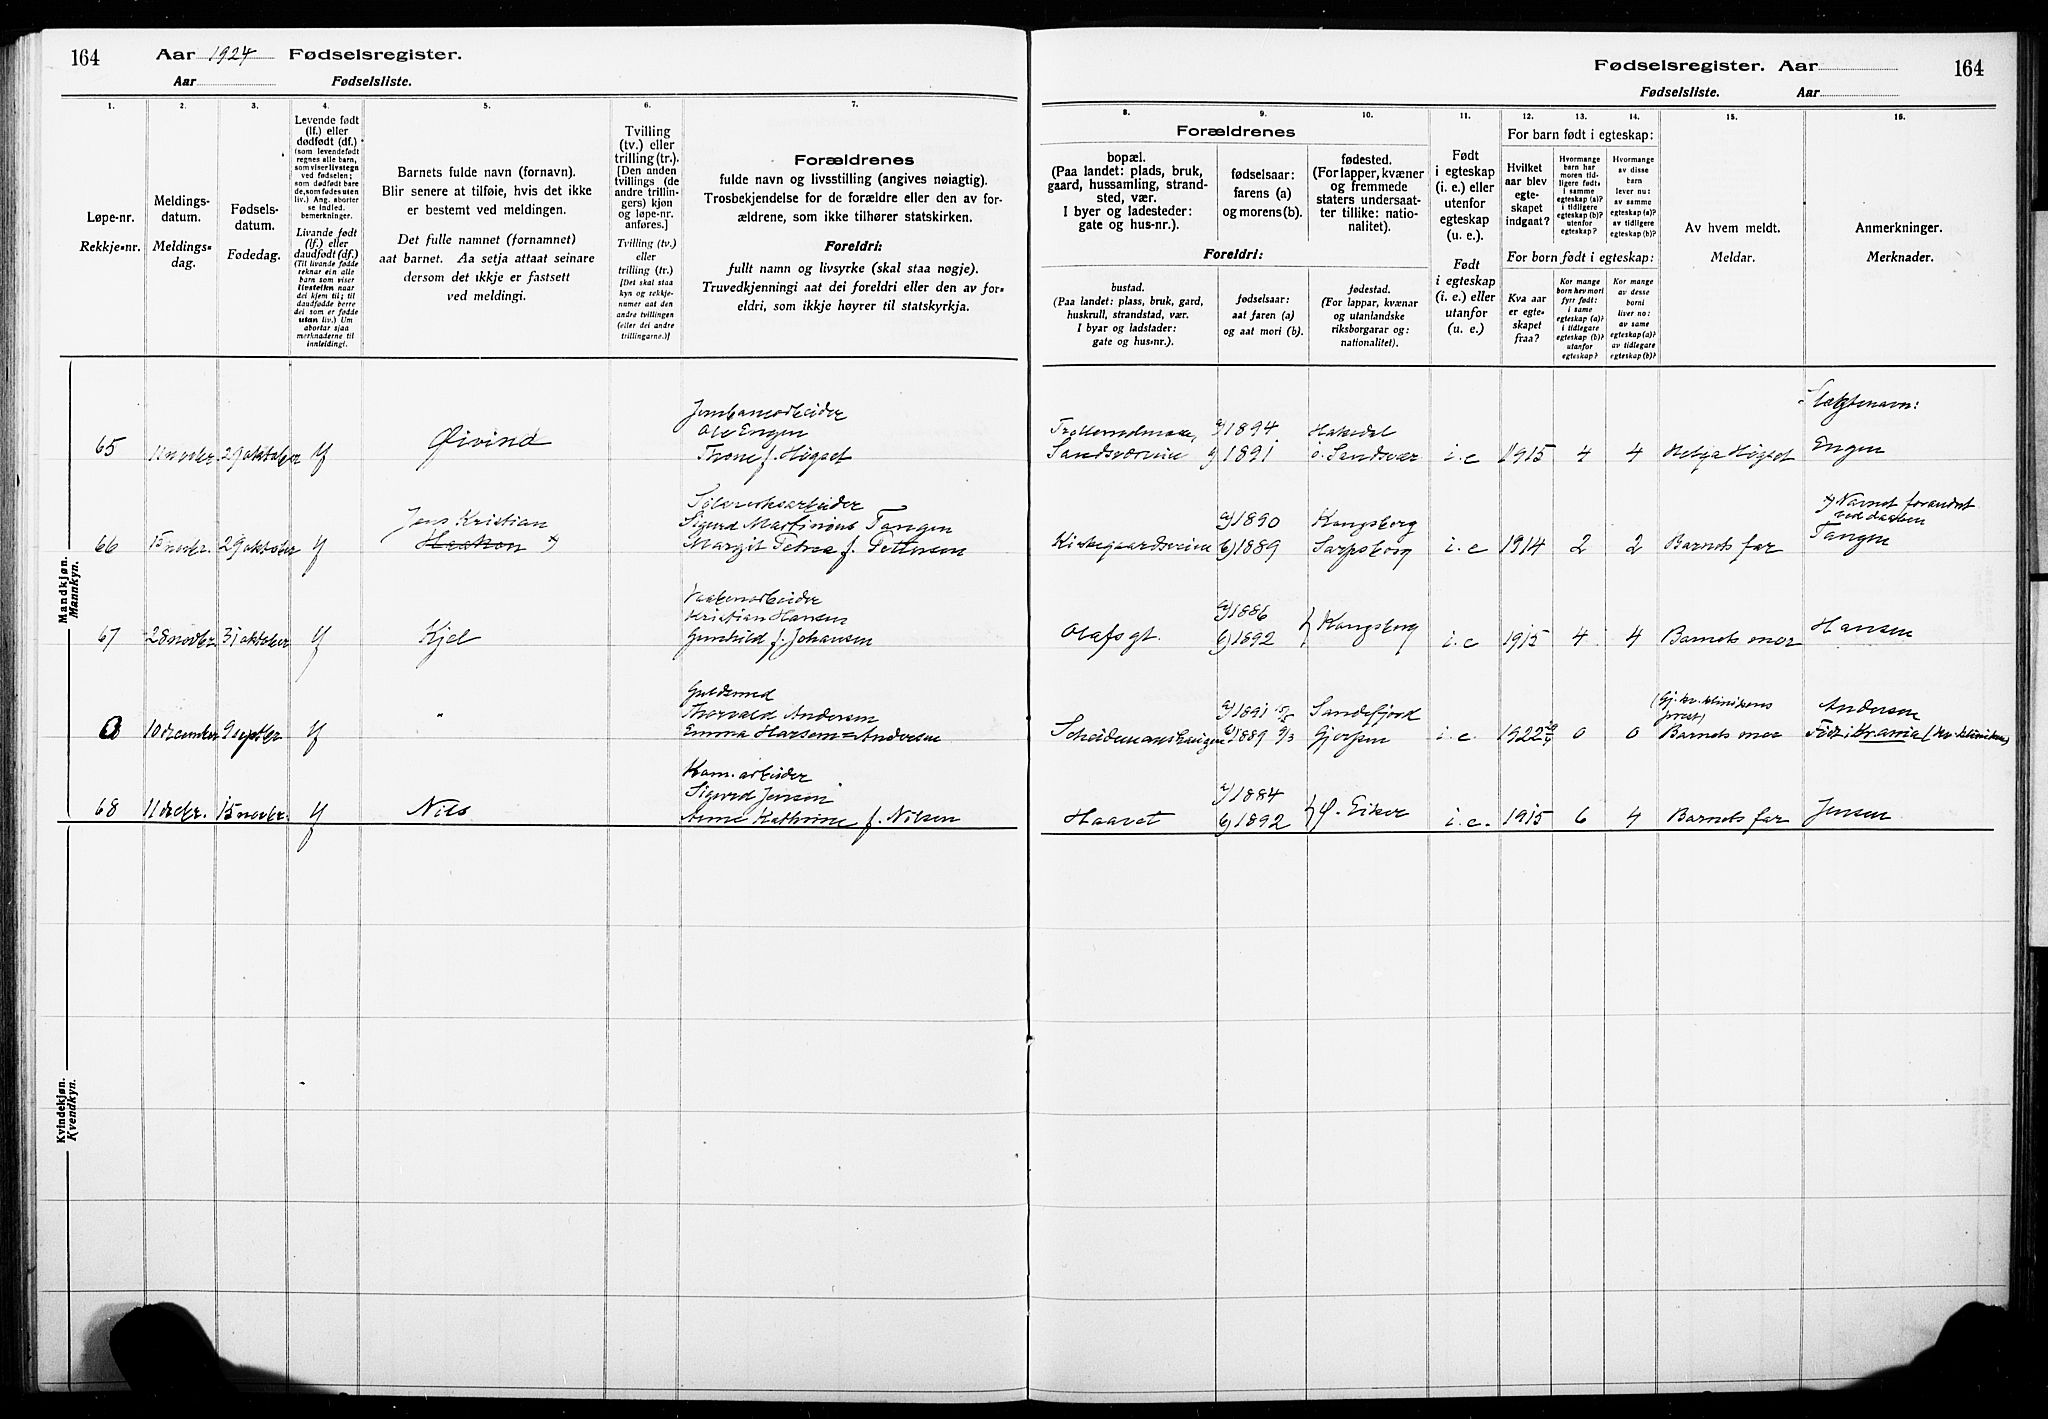 164 Aar 1924 Fødselsregister.
Aar Fødselsliste.
Fødselsregister. Aar 164
Fødselsliste. Aar
1.
Løpe-nr.
Rekkje-nr.
2.
Meldings-
datum.
Meldings-
dag.
3.
Fødsels-
datum.
Fødedag.
4.
Levende født
(lf.) eller
dødfødt (df.)
(som levendefødt
regnes alle barn,
som viser livstegn
ved fødselen;
som dødfødt bare
de, som fødes uten
liv.) Ang. aborter
se indled.
bemerkninger.
Livande født
(lf.) eller
daudfødt (df.)
(Til livande fødde
reknar ein alle
born som viser
livsteikn naar
dei kjem til; til
daudfødde berre
dei som er fødde
utan liv.) Um
abortar sjaa
merknaderne til
innleiding).
5.
Barnets fulde navn (fornavn).
Blir senere at tilføie, hvis det ikke
er bestemt ved meldingen.
Det fulle namnet (fornamnet)
aat barnet. Aa setja attaat seinare
dersom det ikkje er fastsett
ved meldingi.
6.
Tvilling
(tv.) eller
trilling (tr.).
[Den anden
tvillings (de
andre trillin-
gers) kjøn
og løpe-nr.
anføres.]
Tvilling (tv.)
eller
trilling (tr.)
[Det skal staa
kyn og rekkje-
numer aat den
andre tvillingen
(eller dei andre
trillingarne.)]
7.
Forældrenes
fulde navn og livsstilling (angives nøiagtig).
Trosbekjendelse for de forældre eller den av for-
ældrene, som ikke tilhører statskirken.
Foreldri:
fullt namn og livsyrke (skal staa nøgje).
Truvedkjenningi aat dei foreldri eller den av for-
eldri, som ikkje høyrer til statskyrkja.
Forældrenes
8.
bopæl.
(Paa landet: plads, bruk,
gaard, hussamling, strand-
sted, vær.
I byer og ladesteder:
gate og hus-nr.).
9.
fødselsaar:
farens (a)
og morens (b).
10.
fødested.
(For lapper, kvæner
og fremmede
staters undersaat-
ter tillike: natio-
nalitet).
Foreldri:
bustad.
(Paa landet: plass, bruk, gard,
huskrull, strandstad, vær.
I byar og ladstader:
gate og hus-nr.).
fødselsaar:
aat faren (a)
og aat mori (b).
fødestad.
(For lappar, kvænar
og utanlandske
riksborgarar og:
nationalitet).
11.
Født
i egteskap
(i. e.) eller
utenfor
egteskap
(u. e.).
Født
i egteskap
(i. e.) eller
utanfor
(u. e.).
For barn født i egteskap:
12.
Hvilket
aar blev
egte-
skapet
indgaat?
13.
Hvormange
barn har
moren tid-
ligere født:
i samme
egteskap (a)?
i tidligere
egteskap (b)?
utenfor
egteskap?
14.
Hvormange
av disse
barn
lever nu:
av samme
egteskap (a)?
av tidligere
egteskap (b)?
For born født i egteskap:
Kva aar
er egte-
skapet
fraa?
Kor mange
born hev mori
fyrr født:
i same
egteskap (a)?
i tidlegare
egteskap (b)?
utanfor
egteskap?
Kor mange
av desse
borni
liver no:
av same
egteskap (a)?
av tidlegare
egteskap (b)?
15.
Av hvem meldt.
Meldar.
16.
Anmerkninger.
Merknader.
Mandkjøn.
Mannkyn.
65 11 novbr. 29 oktober lf Øivind
Jernbanearbeider
Ole Engen
Thone f. Høgset
Sandsværveien
a) 1894
b) 1891
Hakadal
ö. Sandsvær
i. e 1915 4 4 Helga Høgset
Slægtsnavn:
Engen
66 15 novbr. 29 oktober lf
Jens Kristian
Haakon x)
Sølvverksarbeider
Sigurd Martinius Tangen
Margit Petrea f. Pettersen
Kirkegaardsveien
a) 1890
b) 1889
Kongsberg
Sarpsborg
i. e 1914 2 2 Barnets far
x) Navnet forandret
ved daaben
Tangen
67 28 novbr. 31 oktober lf Kjel
Vaabenarbeider
Kristian Hansen
Gunhild f. Johansen
Olafs gt.
a) 1886
b) 1892
Kongsberg
i. e 1915 4 4 Barnets mor Hansen
0 10 december 9 septbr lf "
Guldsmed
Thorvald Andersen
Emma Hansen=Andersen
a) 1891 15/5
b) 1889 9/3
Sandefjord
Gjerpen
i. e. 1922 0 0
(Gj. kv. klinikens
prest)
Barnets mor
Andersen
Født i Krania (kv. kliniken)
68 11 decbr. 15 novbr. lf Nils
Kom. arbeider
Sigurd Jensen
Anne Kathrine f. Nilsen
Haavet
a) 1884
b) 1892
Ø. Eiker
i. e. 1915 6 4 Barnets far Jensen
Kvindekjøn.
Kvendkyn.